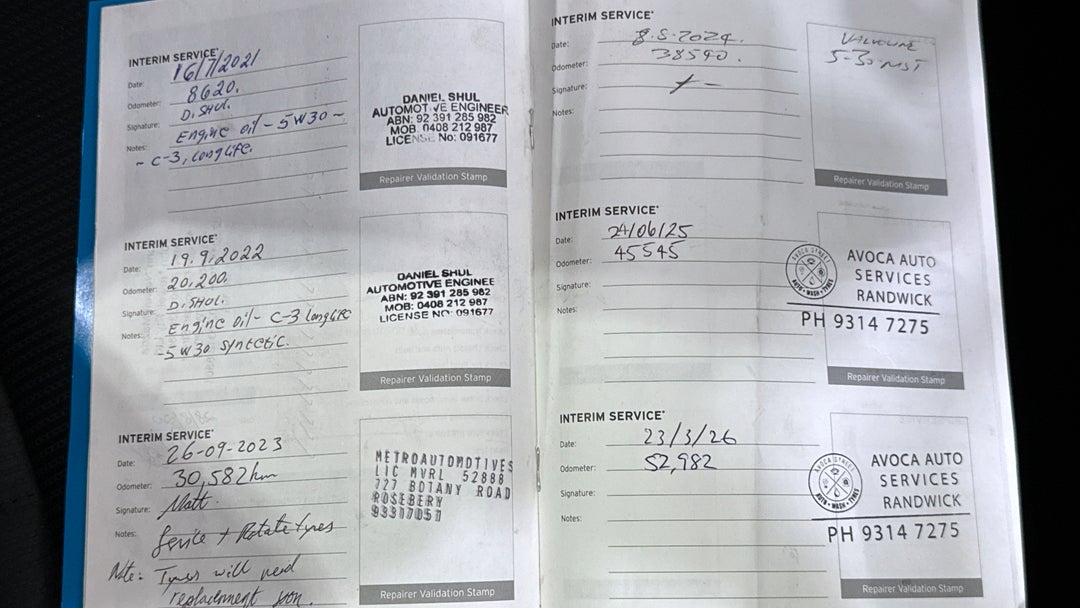 INTERIM SERVICE*
Date: 16/7/2021
Odometer: 8620.
Signature: D. SHUL.
Notes: Engine oil - 5W30 ~
~ C-3, LONGLIFE.
DANIEL SHUL
AUTOMOTIVE ENGINEER
ABN: 92 391 285 982
MOB. 0408 212 987
LICENSE No: 091677
Repairer Validation Stamp
INTERIM SERVICE*
Date: 19.9.2022
Odometer: 20,200.
Signature: D. SHUL.
Notes: Engine oil - C-3 longlife
-5W30 Syntetic.
DANIEL SHUL
AUTOMOTIVE ENGINEE
ABN: 92 391 285 982
MOB: 0408 212 987
LICENSE NO: 091677
Repairer Validation Stamp
INTERIM SERVICE*
Date: 26-09-2023
Odometer: 30,582km
Signature: Matt.
Notes: Service + Rotate tyres
Note: Tyres will need
replacement soon.
METROAUTOMOTIVES
LIC MVRL 52888
727 BOTANY ROAD
ROSEBERY
93317051
Repairer Validation Stamp
INTERIM SERVICE*
Date: 8.5.2024.
Odometer: 38590.
Signature:
Notes:
VALVOLINE
5-30
Repairer Validation Stamp
INTERIM SERVICE*
Date: 24/06/25
Odometer: 45545
Signature:
Notes:
AVOCA STREET
AUTO • WASH • TYRES
AVOCA AUTO
SERVICES
RANDWICK
PH 9314 7275
Repairer Validation Stamp
INTERIM SERVICE*
Date: 23/3/26
Odometer: 52,982
Signature:
Notes:
AVOCA STREET
AUTO • WASH • TYRES
AVOCA AUTO
SERVICES
RANDWICK
PH 9314 7275
Repairer Validation Stamp